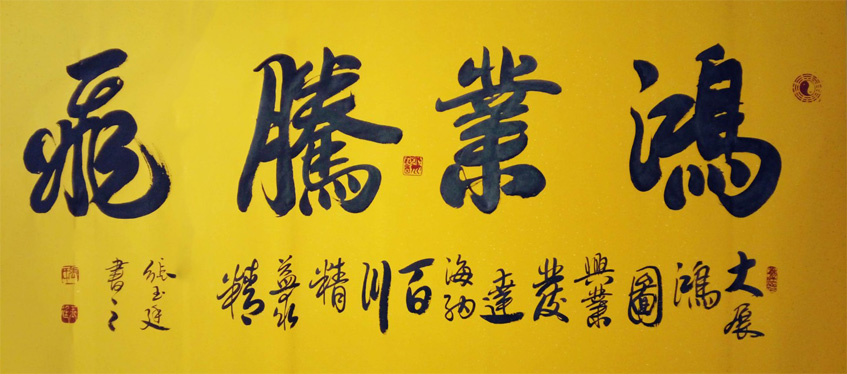 鴻業騰飛
大展鴻圖興業發達海納百川精益求精
張玉廷
書之